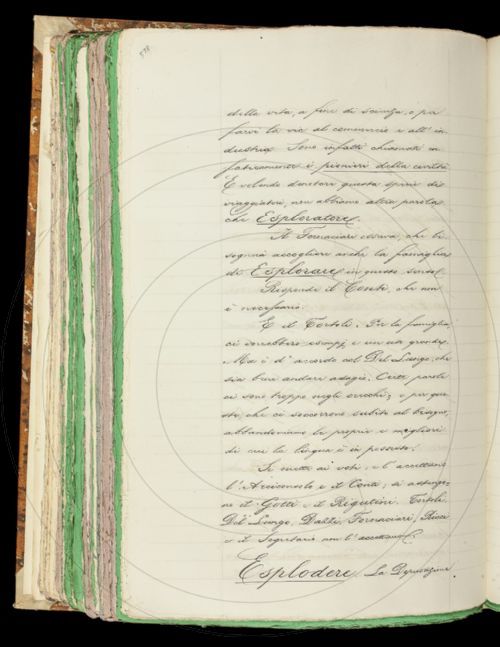 538
della vita, a fine di scienza, o per
farsi la via al commercio e all' in-
dustria. Sono infatti chiamati en-
faticamente i pionieri della civiltà.
E volendo denotare questa specie di
viaggiatori, non abbiamo altra parola
che Esploratore.
Il Fornaciari osserva, che bi-
sognerà accogliere anche la famiglia
di Esplorare in questo senso.
Risponde il Conti, che non
è necessario.
E il Tortoli: Per la famiglia,
ci vorrebbero esempj, e in via grande.
Ma è d' accordo col Del Lungo, che
sia bene andare adagio. Certe parole
ci sono troppo negli orecchi; e per que-
sto, che ci soccorrono subito al bisogno,
abbandoniamo le proprie e migliori
di cui la lingua è in possesso.
Si mette ai voti, e l' accettano
l' Arciconsolo e il Conti; si asten-
ne il Gotti e il Rigutini. Tortoli,
Del Lungo, Dalzi, Fornaciari, Ricci
e il Segretario non l' accettano.
Esplodere. La Deputazione